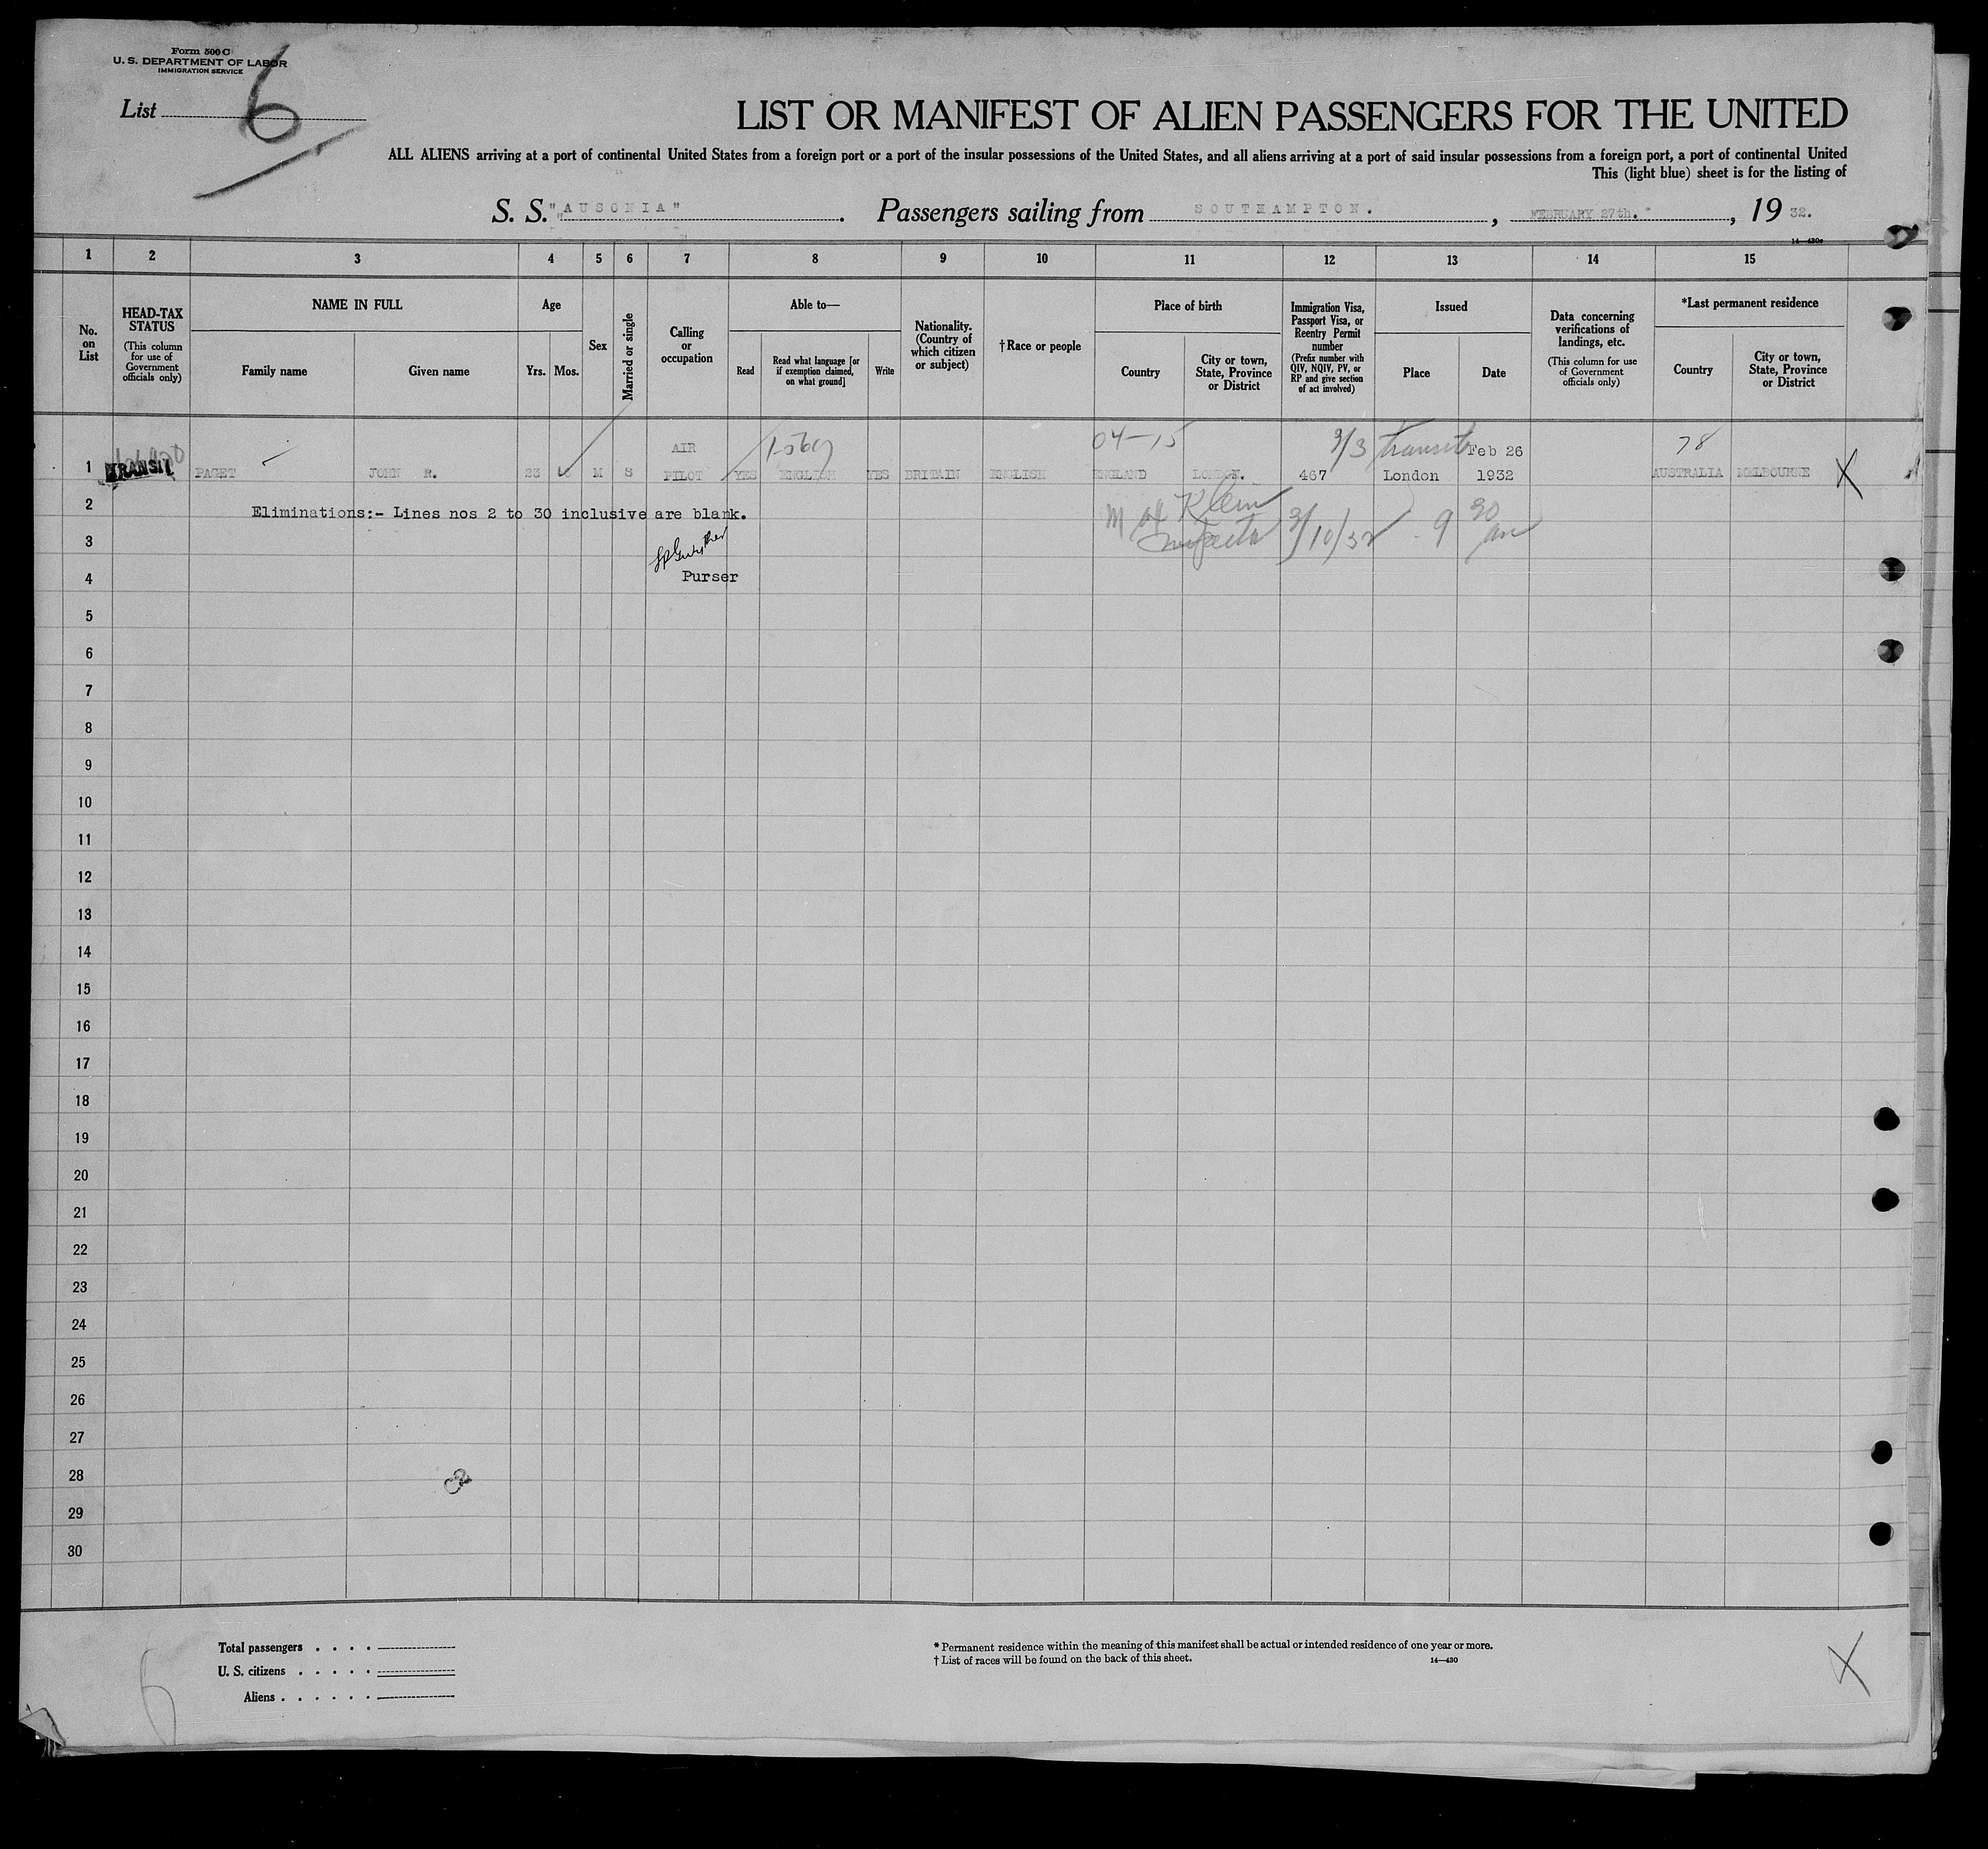 Form 500 C
U. S. DEPARTMENT OF LABOR
IMMIGRATION SERVICE
List 6
LIST OR MANIFEST OF ALIEN PASSENGERS FOR THE UNITED
ALL ALIENS arriving at a port of continental United States from a foreign port or a port of the insular possessions of the United States, and all aliens arriving at a port of said insular possessions from a foreign port, a port of continental United
This (light blue) sheet is for the listing of
S. S. "AUSONIA". Passengers sailing from SOUTHAMPTON. , FEBRUARY 27th. , 19 32.
14—430
1 2 3 4 5 6 7 8 9 10 11 12 13 14 15
No. on List
HEAD-TAX STATUS
(This column for use of Government officials only)
NAME IN FULL
Family name Given name
Age
Yrs. Mos.
Sex
Married or single
Calling or occupation
Able to—
Read
Read what language [or if exemption claimed, on what ground]
Write
Nationality. (Country of which citizen or subject)
†Race or people
Place of birth
Country
City or town, State, Province or District
Immigration Visa, Passport Visa, or Reentry Permit number
(Prefix number with QIV, NQIV, PV, or RP and give section of act involved)
Issued
Place Date
Data concerning verifications of landings, etc.
(This column for use of Government officials only)
*Last permanent residence
Country
City or town, State, Province or District
AIR 04-15 3/3 transit Feb 26 78
1 TRANSIT PAGET JOHN R. 23 M S PILOT YES ENGLISH YES BRITAIN ENGLISH ENGLAND LONDON. 467 London 1932 AUSTRALIA MELBOURNE X
2
Eliminations:- Lines nos 2 to 30 inclusive are blank.
Klein
3
3/10/32 9 30
4
Purser
5
6
7
8
9
10
11
12
13
14
15
16
17
18
19
20
21
22
23
24
25
26
27
28
29
30
Total passengers . . . .
U. S. citizens . . . . .
Aliens . . . . . .
* Permanent residence within the meaning of this manifest shall be actual or intended residence of one year or more.
† List of races will be found on the back of this sheet.
14—430
X
6